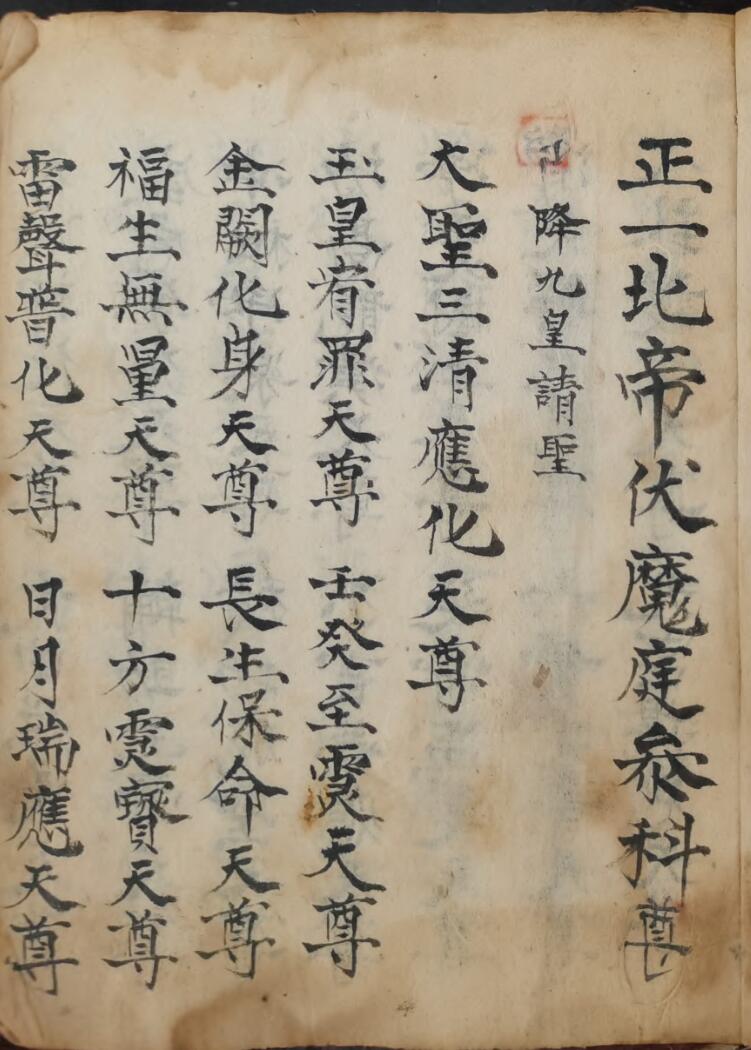 正一北帝伏魔庭叅科
降九皇請聖
大聖三清應化天尊
玉皇宥罪天尊 壬癸至靈天尊
金闕化身天尊 長生保命天尊
福生無量天尊 十方靈寳天尊
雷聲普化天尊 日月瑞應天尊